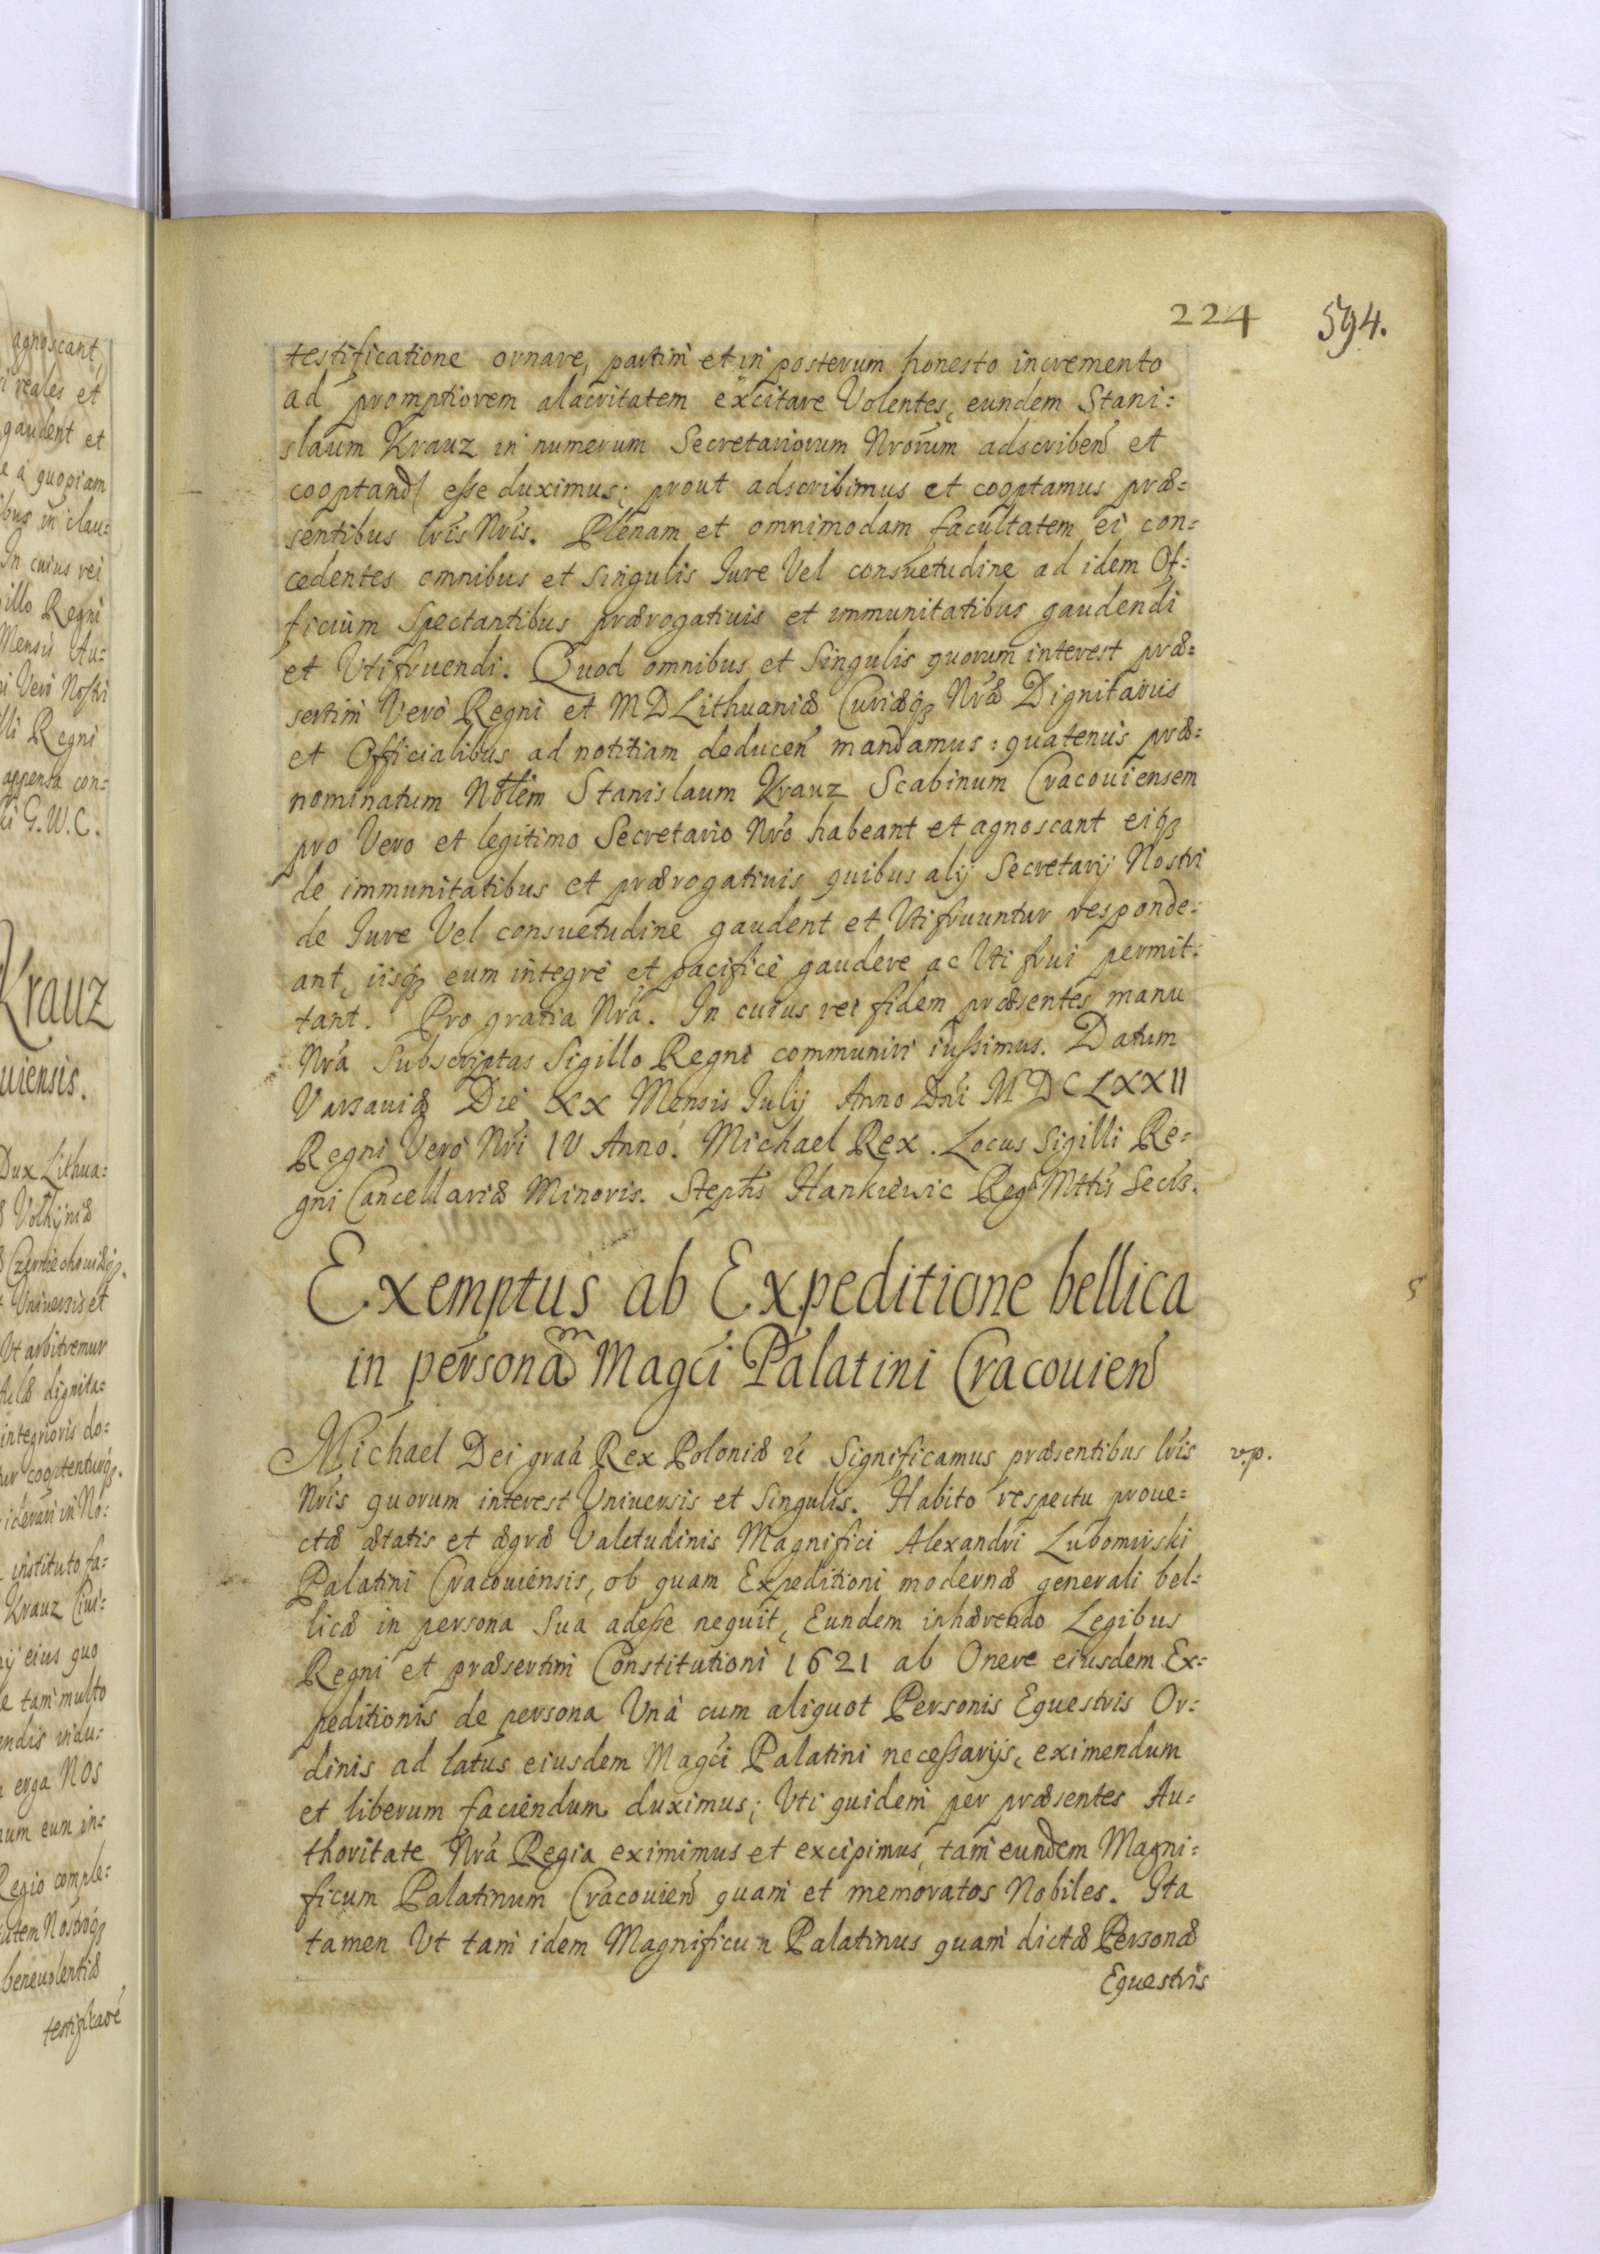 224 594.
testificatione ornare, partim et in posterum honesto incremento
ad promptiorem alacritatem excitare Volentes, eundem Stani:
slaum Krauz in numerum Secretariorum Nrorum adscriben et
cooptand esse duximus; prout adscribimus et cooptamus præ:
sentibus lris Nris. Plenam et omnimodam facultatem ei con:
cedentes omnibus et singulis Jure Vel consuetudine ad idem Of:
ficium Spectantibus prærogatiuis et immunitatibus gaudendi
et Vtifruendi. Quod omnibus et Singulis quorum interest præ:
sertim Verò Regni et MDLithuaniæ Curiæq; Nræ Dignitarijs
et Officialibus ad notitiam deducen mandamus: quatenus præ:
nominatum Noblem Stanislaum Krauz Scabinum Cracouiensem
pro Vero et legitimo Secretario Nro habeant et agnoscant eiq;
de immunitatibus et prærogatiuis quibus alij Secretarij Nostri
de Jure Vel consuetudine gaudent et Vtifruuntur responde:
ant, iisq; eum integrè et pacificè gaudere ac Vti frui permit:
tant. Pro gratia Nra. In cuius rei fidem præsentes manu
Nra Subscriptas Sigillo Regni communiri iussimus. Datum
Varsauiæ Die XX Mensis Julij Anno Dni MDCLXXII
Regni Verò Nri IV Anno. Michael Rex. Locus Sigilli Re:
gni Cancellariæ Minoris. Stephs Hankiewic Reg Mttis Secrs.
Exemptus ab Expeditione bellica
in personam Magci Palatini Cracouien
Michael Dei graa Rex Poloniæ Significamus præsentibus lris v.p.
Nris quorum interest Vniuersis et Singulis. Habito respectu proue:
ctæ ætatis et ægræ Valetudinis Magnifici Alexandri Lubomirski
Palatini Cracouiensis, ob quam Expeditioni modernæ generali bel:
licæ in persona Sua adesse nequit, Eundem inhærendo Legibus
Regni et præsertim Constitutioni 1621 ab Onere eiusdem Ex:
peditionis de persona Vnà cum aliquot Personis Equestris Or:
dinis ad latus eiusdem Magci Palatini necessarijs, eximendum
et liberum faciendum duximus; Vti quidem per præsentes Au:
thoritate Nra Regia eximimus et excipimus, tam eundem Magni:
ficum Palatinum Cracouien quam et memoratos Nobiles. Ita
tamen Vt tam idem Magnificun Palatinus quam dictæ Personæ
Equestris